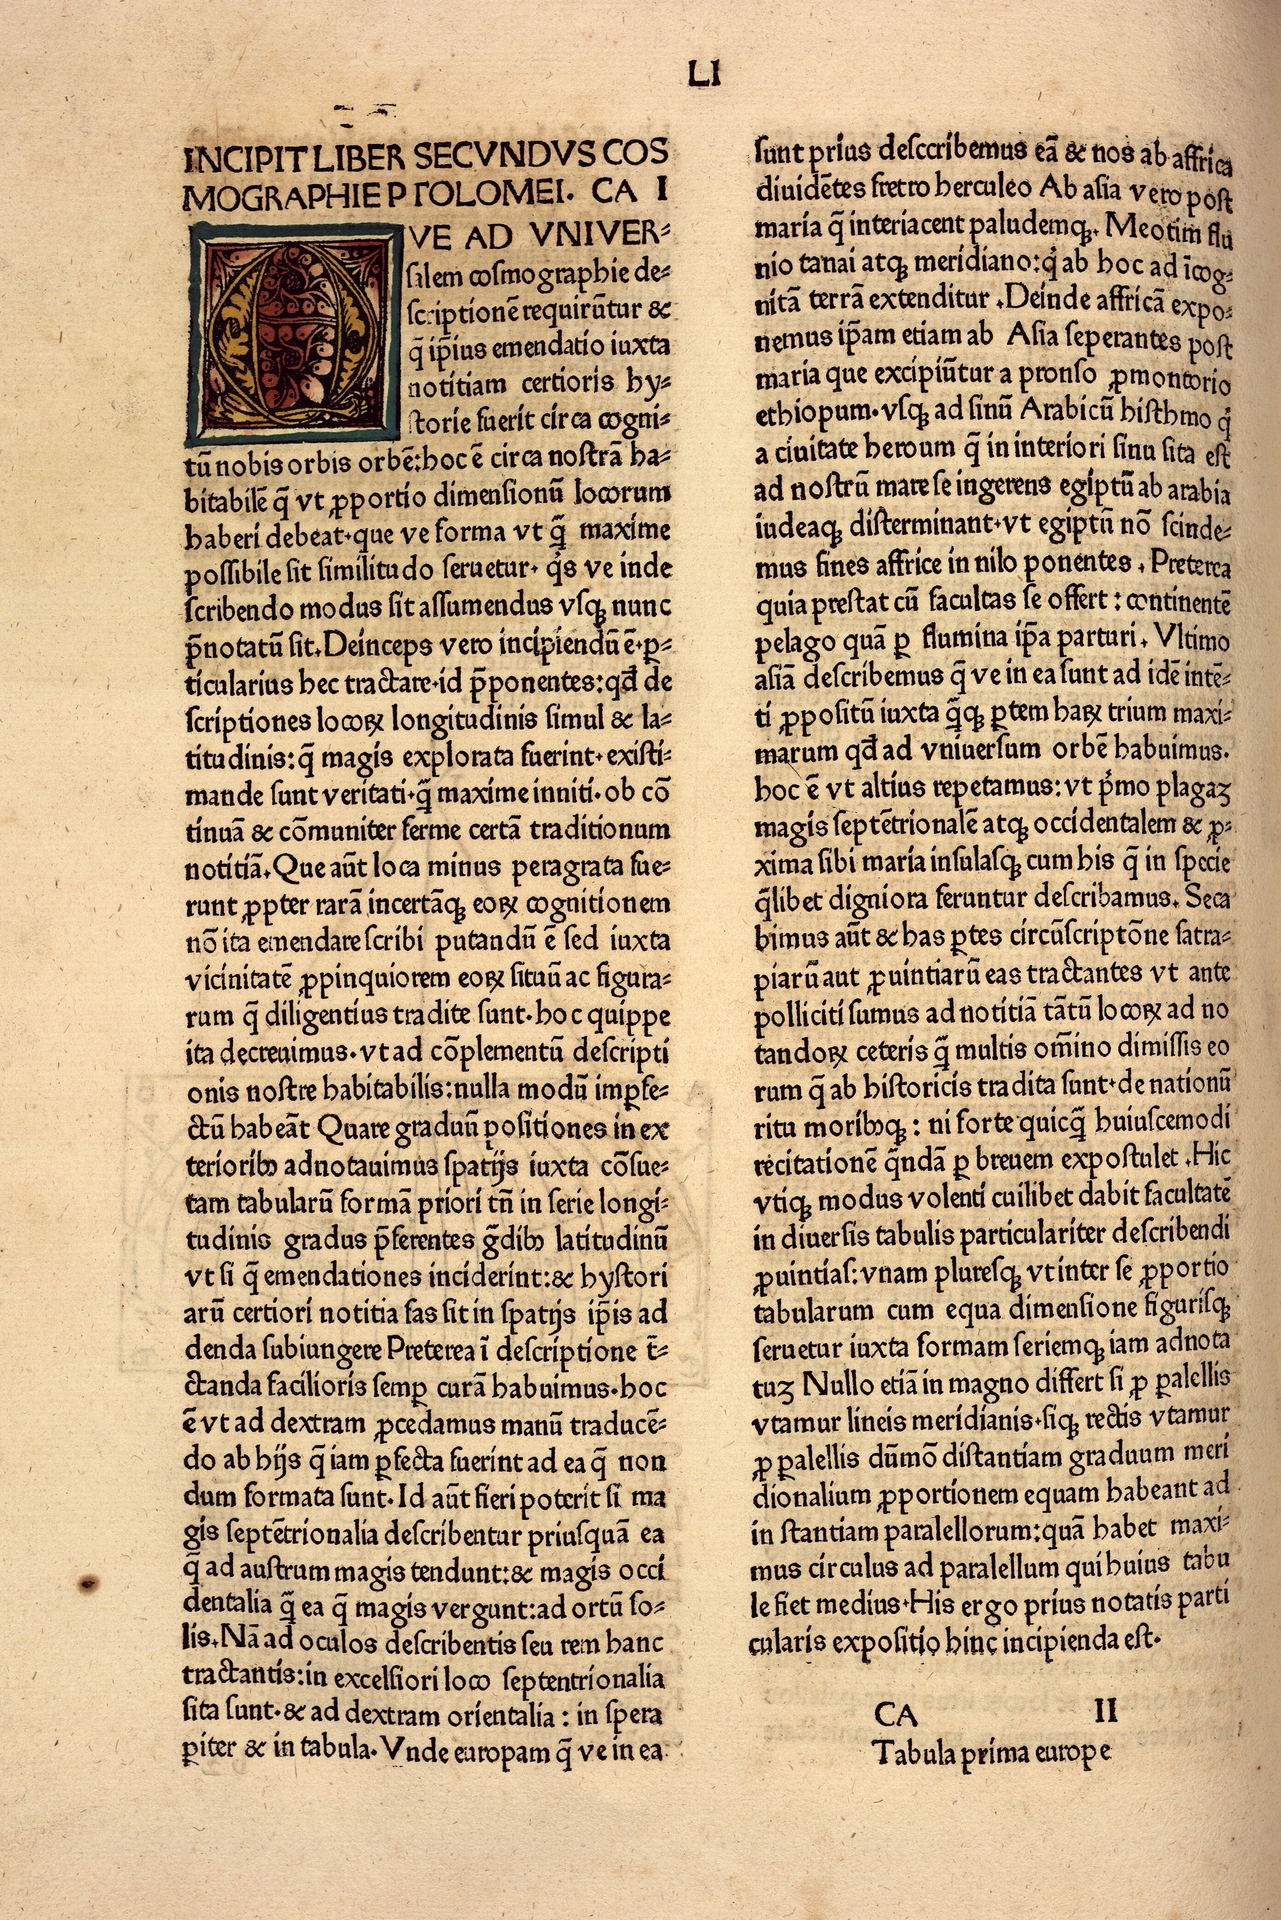 LI
INCIPIT LIBER SECVNDVS COS
MOGRAPHIE PTOLOMEI. CA I
QVE AD VNIVER⸗
salem cosmographie de⸗
scriptionē requirūtur &
q̄ ip̄ius emendatio iuxta
notitiam certioris hy⸗
storie fuerit circa cogni⸗
tū nobis orbis orbē:hoc ē circa nostrā ha⸗
bitabilē q̄ vt ꝓportio dimensionū locorum
haberi debeat.que ve forma vt q̄ maxime
possibile sit similitudo seruetur. qͥs ve inde
scribendo modus sit assumendus vsqꝫ nunc
p̄notatū sit.Deinceps vero incipiendū ē.ꝑ⸗
ticularius hec tractare.id p̄ponentes:qđ de
scriptiones locoꝝ longitudinis simul & la⸗
titudinis:q̄ magis explorata fuerint.existi⸗
mande sunt veritati.q̄ maxime inniti.ob cō
tinuā & cōmuniter ferme certā traditionum
notitiā.Que aūt loca minus peragrata fue⸗
runt ꝓpter rarā incertāqꝫ eoꝝ cognitionem
nō ita emendare scribi putandū ē sed iuxta
vicinitatē ꝓpinquiorem eoꝝ situū ac figura⸗
rum q̄ diligentius tradite sunt.hoc quippe
ita decreuimus.vt ad cōplementū descripti
onis nostre habitabilis:nulla modū imꝑfe⸗
ctū habeāt Quare graduū positiones in ex
terioribꝰ adnotauimus spatijs iuxta cōsue⸗
tam tabularū formā priori tn̄ in serie longi⸗
tudinis gradus p̄ferentes ḡdibꝰ latitudinū
vt si q̄ emendationes inciderint:& hystori
arū certiori notitia fas sit in spatijs ip̄is ad
denda subiungere Preterea ī descriptione t̄⸗
ctanda facilioris semꝑ curā habuimus.hoc
ē vt ad dextram ꝓcedamus manū traducē⸗
do ab hijs q̄ iam ꝑfecta fuerint ad ea q̄ non
dum formata sunt.Id aūt fieri poterit si ma
gis septētrionalia describentur priusquā ea
q̄ ad austrum magis tendunt:& magis occi
dentalia q̄ ea q̄ magis vergunt:ad ortū so⸗
lis.Nā ad oculos describentis seu rem hanc
tractantis:in excelsiori loco septentrionalia
sita sunt.& ad dextram orientalia : in spera
ꝑiter & in tabula.Vnde europam q̄ ve in ea
sunt prius desccribemus eā & nos ab affrica
diuidētes fretro herculeo Ab asia vero post
maria q̄ interiacent paludemqꝫ. Meotim flu
nio tanai atqꝫ meridiano:qͥ ab hoc ad īcog⸗
nitā terrā extenditur .Deinde affricā expo⸗
nemus ip̄am etiam ab Asia seperantes post
maria que excipiūtur a pronso ꝓmontorio
ethiopum.vsqꝫ ad sinū Arabicū histhmo qͥ
a ciuitate heroum q̄ in interiori sinu sita est
ad nostrū mare se ingerens egiptū ab arabia
iudeaqꝫ disterminant.vt egiptū nō scinde⸗
mus fines affrice in nilo ponentes . Preterea
quia prestat cū facultas se offert : continentē
pelago quā ꝑ flumina ip̄a parturi . Vltimo
asiā describemus q̄ ve in ea sunt ad idē intē⸗
ti ꝓpositū iuxta q̄qꝫ ꝑtem haꝝ trium maxi⸗
marum qđ ad vniuersum orbē habuimus.
hoc ē vt altius repetamus:vt pͥmo plagaꝫ
magis septētrionalē atqꝫ occidentalem & ꝓ⸗
xima sibi maria insulasqꝫ cum his q̄ in specie
q̄libet digniora feruntur describamus. Seca
bimus aūt & has ꝑtes circūscriptōne satra⸗
piarū aut ꝓuintiarū eas tractantes vt ante
polliciti sumus ad notitiā tātū locoꝝ ad no
tandoꝝ ceteris q̄ multis om̄ino dimissis eo
rum q̄ ab historicis tradita sunt.de nationū
ritu moribꝰqꝫ : ni forte quicq̄ huiuscemodi
recitationē q̄ndā ꝑ breuem expostulet .Hic
vtiqꝫ modus volenti cuilibet dabit facultatē
in diuersis tabulis particulariter describendi
ꝓuintias:vnam pluresqꝫ vt inter se ꝓportio
tabularum cum equa dimensione figurisqꝫ
seruetur iuxta formam seriemqꝫ iam adnota
tuꝫ Nullo etiā in magno differt si ꝓ ꝑalellis
vtamur lineis meridianis.siqꝫ rectis vtamur
ꝓ ꝑalellis dūmō distantiam graduum meri
dionalium ꝓportionem equam habeant ad
in stantiam paralellorum:quā habet maxi⸗
mus circulus ad paralellum qui huius tabu
le fiet medius.His ergo prius notatis parti
cularis expositio hinc incipienda est.
CA II
Tabula prima europe